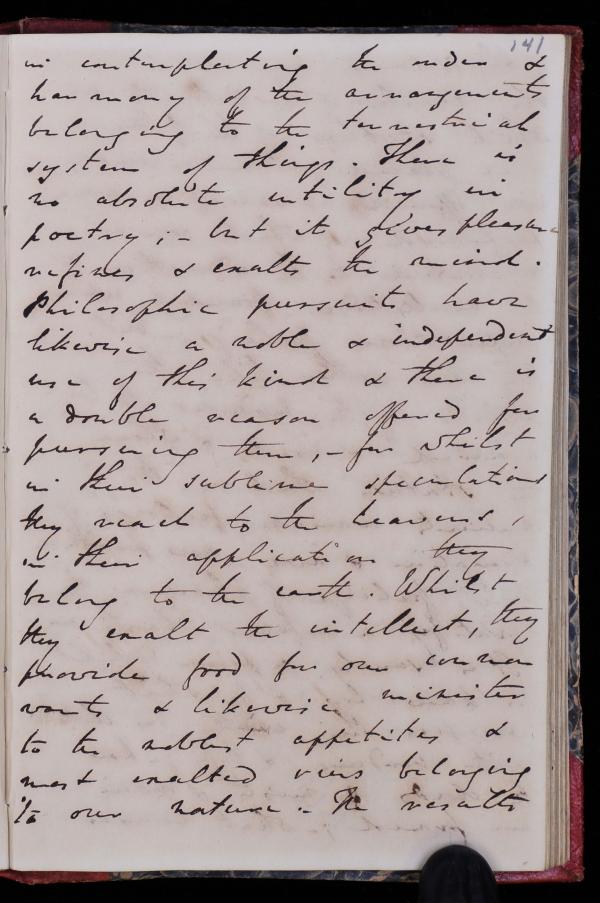 141
in contemplating the order &
harmony of the arrangements
belonging to the terrestrial
system of things. There is
no absolute utility in
poetry; - but it gives pleasure
refines & exalts the mind.
Philosophic pursuits have
likewise a noble & independent
use of this kind & there is
a double reason offered for
pursuing them, - for whilst
in their sublime speculations
they reach to the heavens,
in their application they
belong to the earth. Whilst
they exalt the intellect, they
provide food for our common
wants & likewise minister
to the noblest appetites &
most exalted views belonging
to our nature. - The results